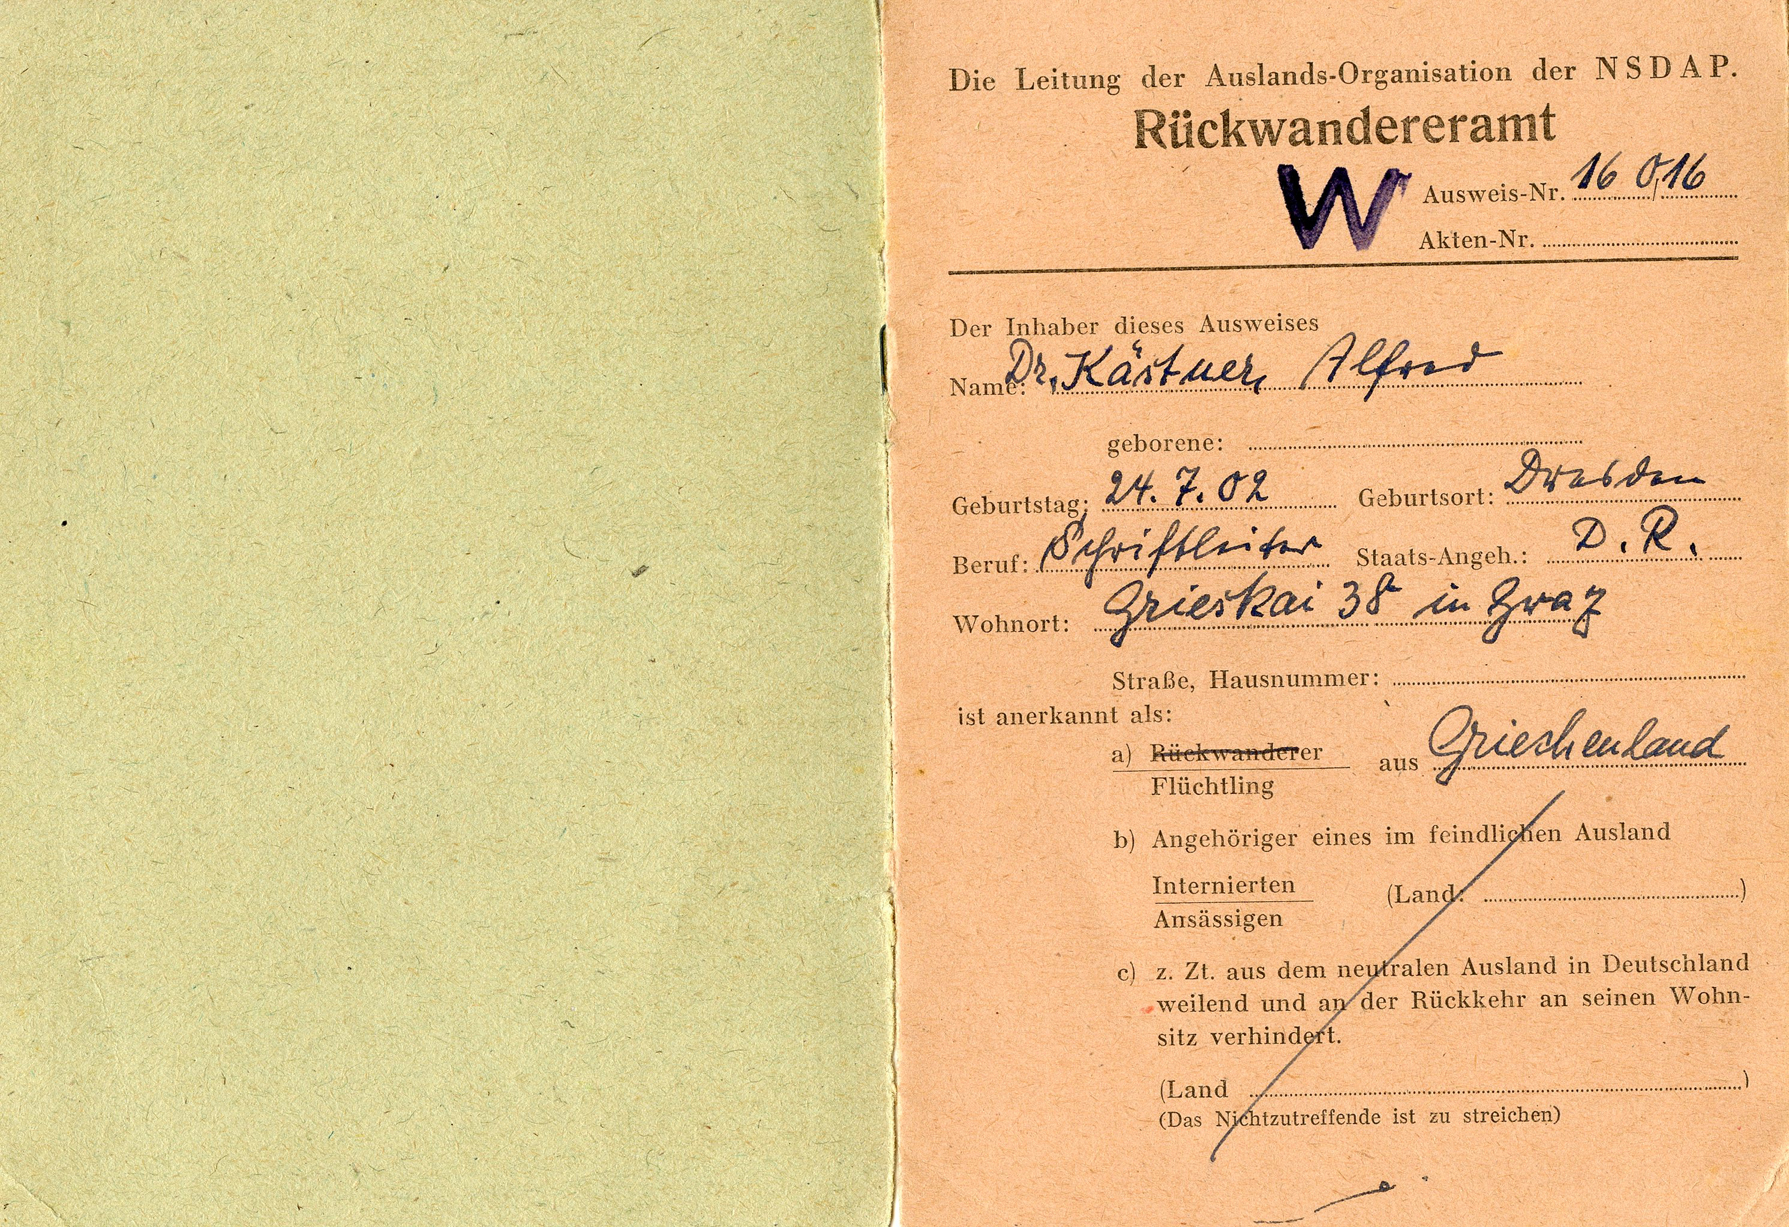 Die Leitung der Auslands-Organisation der NSDAP.
Rückwandereramt
W
Ausweis-Nr. 16 016
Akten-Nr.
Der Inhaber dieses Ausweises
Name: Dr. Kästner, Alfred
geborene:
Geburtstag: 24.7.02 Geburtsort: Dresden
Beruf: Schriftleiter Staats-Angeh.: D.R.
Wohnort: Grieskai 38 in Graz
Straße, Hausnummer:
ist anerkannt als:
a) Rückwanderer aus Griechenland
Flüchtling
b) Angehöriger eines im feindlichen Ausland
Internierten (Land: )
Ansässigen
c) z. Zt. aus dem neutralen Ausland in Deutschland
weilend und an der Rückkehr an seinen Wohn-
sitz verhindert.
(Land )
(Das Nichtzutreffende ist zu streichen)